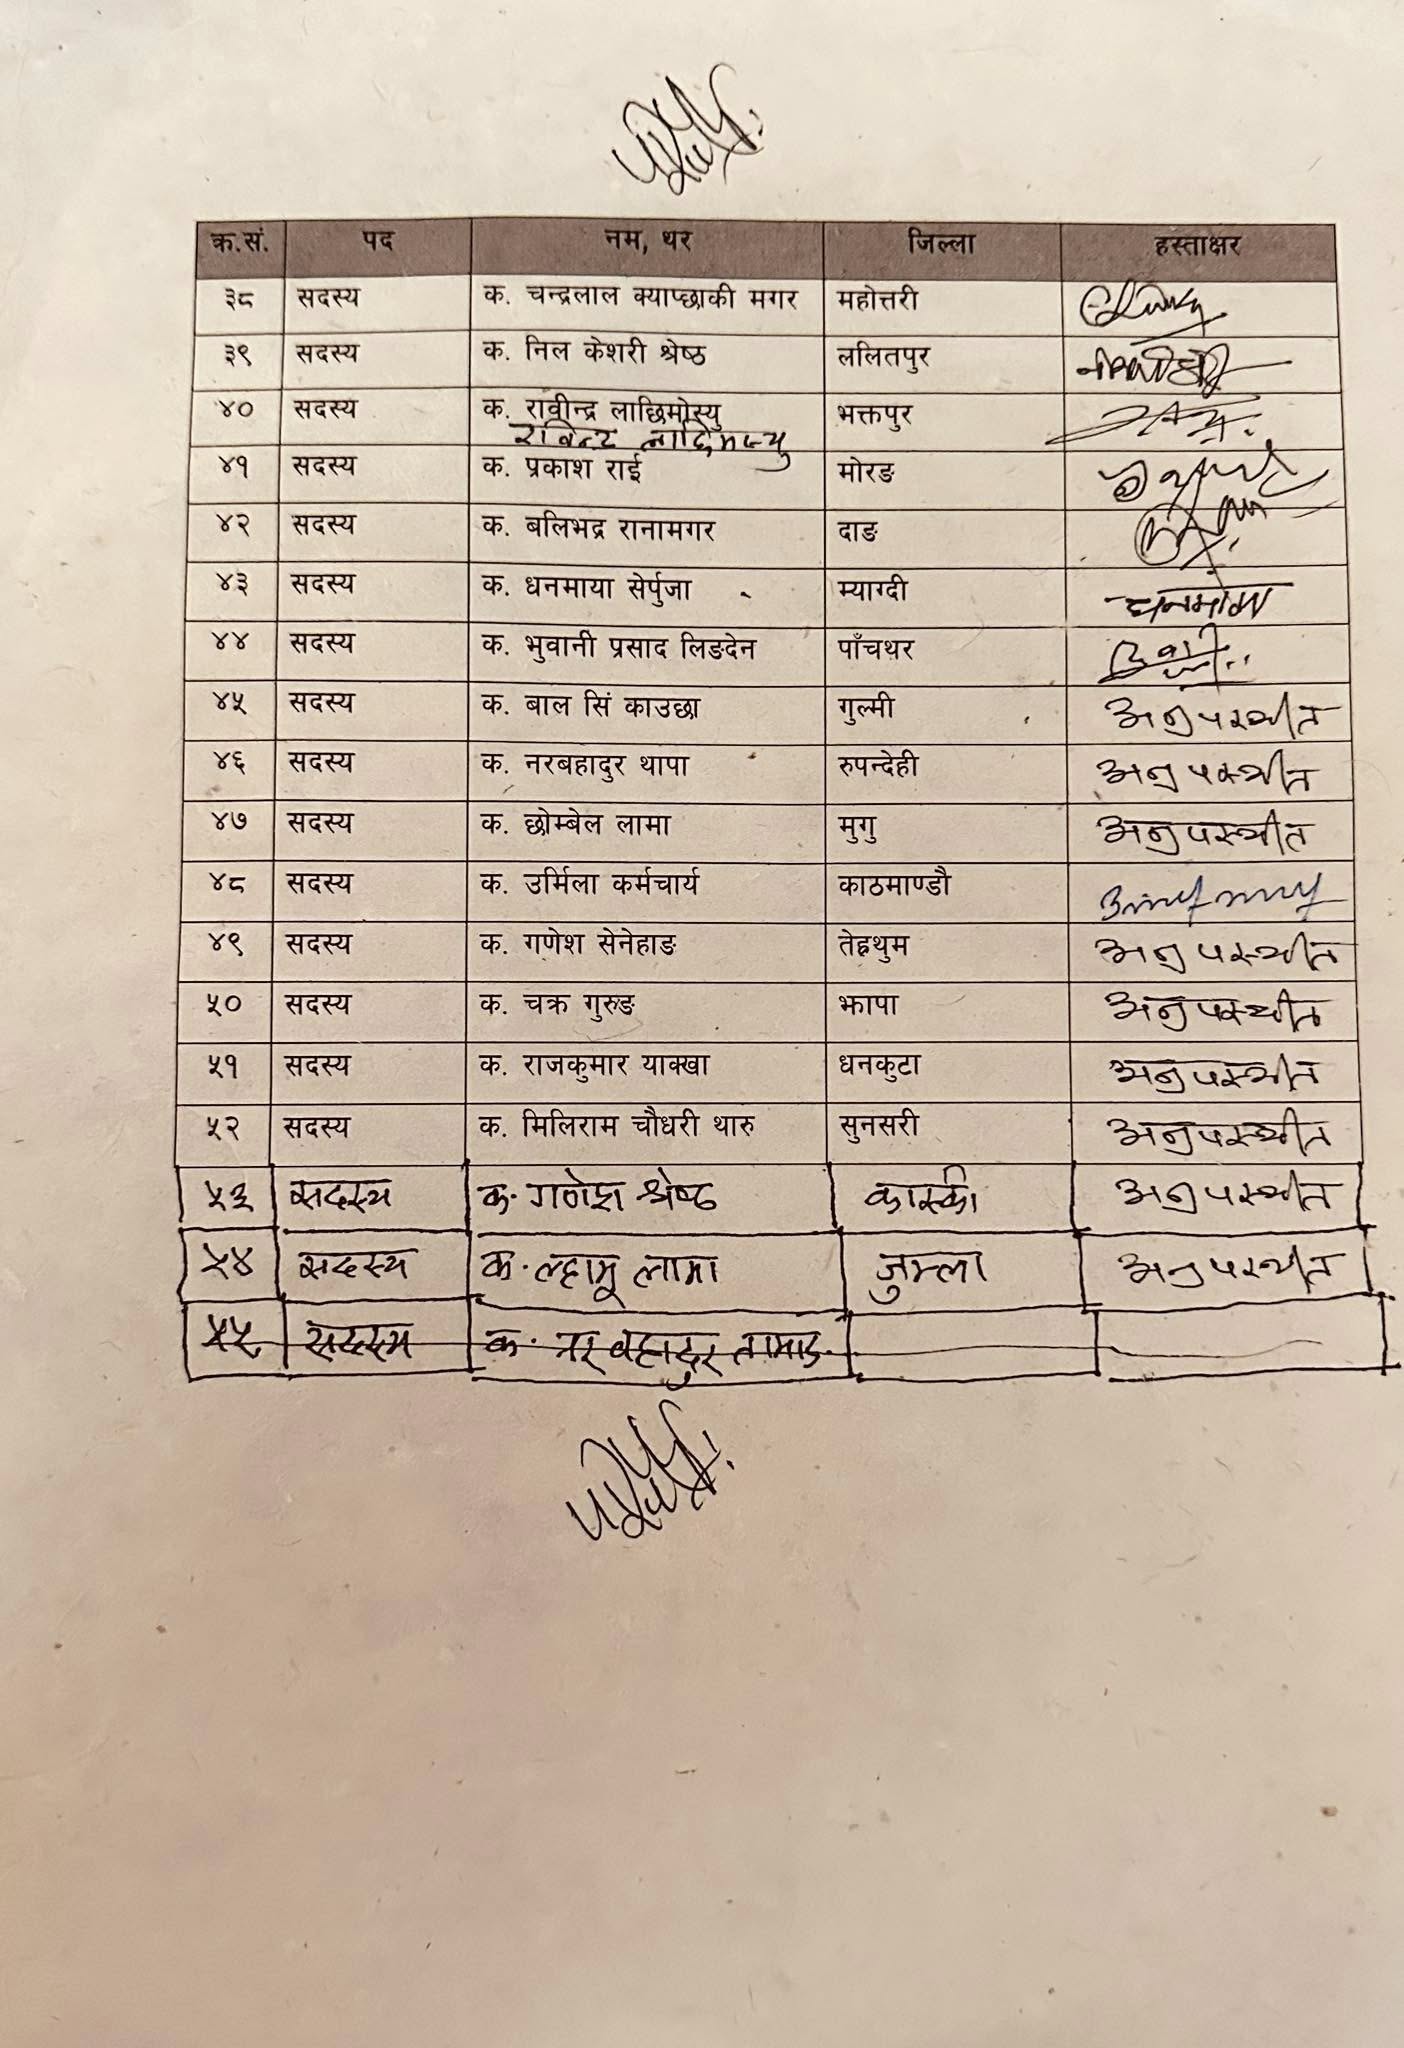 क्र.सं. पद नम, थर जिल्ला हस्ताक्षर
३८ सदस्य क. चन्द्रलाल क्याप्छाकी मगर महोत्तरी
३९ सदस्य क. निल केशरी श्रेष्ठ ललितपुर
४० सदस्य क. रावीन्द्र लाछिमोस्यु भक्तपुर
रविन्द्र लाछिमस्यु
४१ सदस्य क. प्रकाश राई मोरङ
४२ सदस्य क. बलिभद्र रानामगर दाङ
४३ सदस्य क. धनमाया सेर्पुजा म्याग्दी धनमाया
४४ सदस्य क. भुवानी प्रसाद लिङदेन पाँचथर
४५ सदस्य क. बाल सिं काउछा गुल्मी अनुपस्थीत
४६ सदस्य क. नरबहादुर थापा रुपन्देही अनुपस्थीत
४७ सदस्य क. छोम्बेल लामा मुगु अनुपस्थीत
४८ सदस्य क. उर्मिला कर्मचार्य काठमाण्डौ
४९ सदस्य क. गणेश सेनेहाङ तेह्रथुम अनुपस्थीत
५० सदस्य क. चक्र गुरुङ झापा अनुपस्थीत
५१ सदस्य क. राजकुमार याक्खा धनकुटा अनुपस्थीत
५२ सदस्य क. मिलिराम चौधरी थारु सुनसरी अनुपस्थीत
५३ सदस्य क. गणेश श्रेष्ठ कास्की अनुपस्थीत
५४ सदस्य क. ल्हामू लामा जुम्ला अनुपस्थीत
५५ सदस्य क. नर बहादुर तामाङ